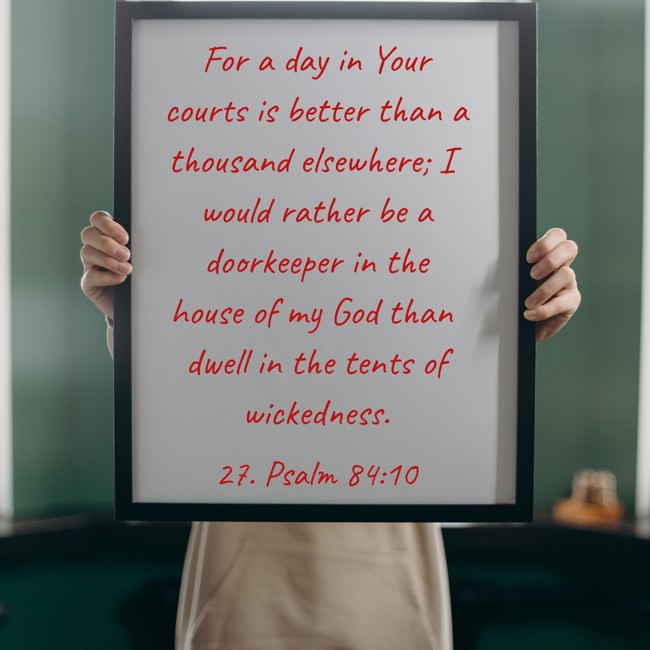 For a day in Your
courts is better than a
thousand elsewhere; I
would rather be a
doorkeeper in the
house of my God than
dwell in the tents of
wickedness.
27. Psalm 84:10